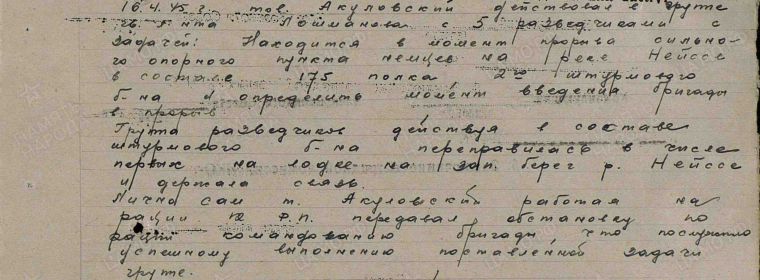 16.4.45 г. тов. Акуловский действовал в группе
гв. л-нта Лошманова с 5 разведчиками с
задачей: Находится в момент прорыва сильно-
го опорного пункта немцев на реке Нейссе
в составе 175 полка, 2го штурмового
б-на и определить момент введения бригады
в прорыв
Группа разведчиков действуя в составе
штурмового б-на переправилась в числе
первых на лодке на зап. берег р. Нейссе
и держала связь.
Лично сам т. Акуловский работая на
рации передавал обстановку по
рации командованию бригады что послужило
успешному выполнению поставленной задачи
группе.